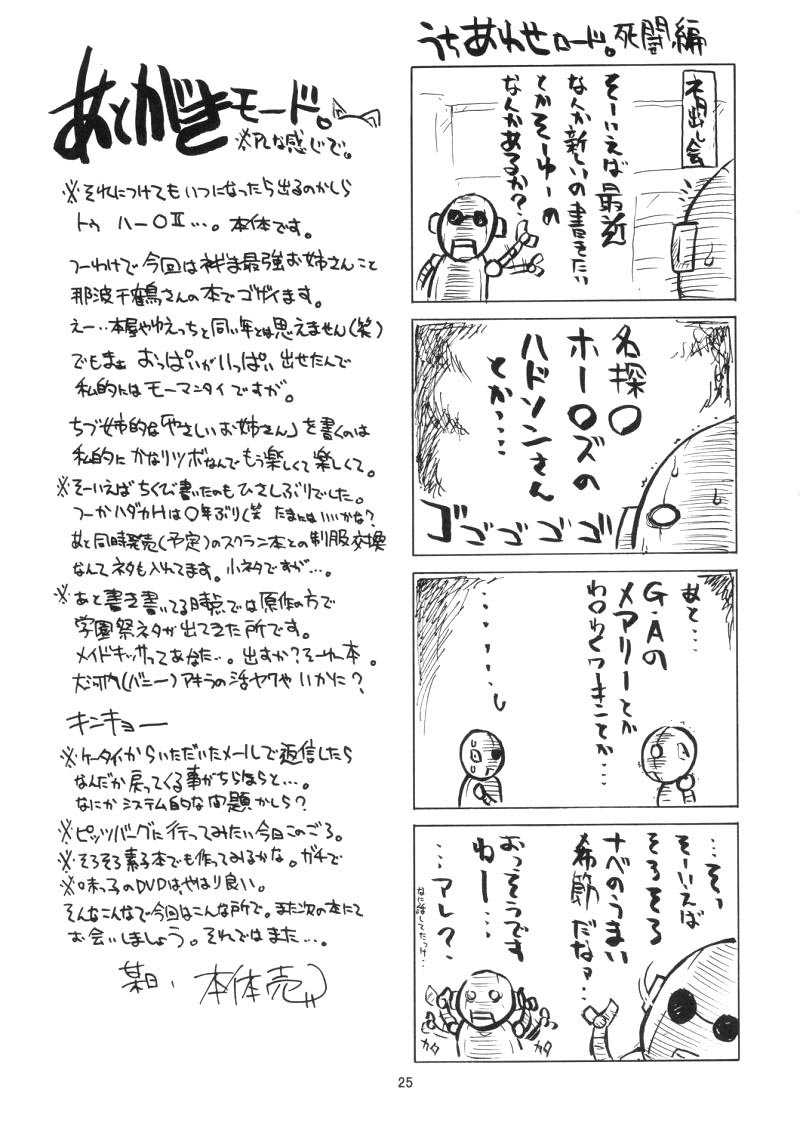 うちあわせロード。死闘編
ネタ出し会
そーいえば最近
なんか新しいの書きたい
とかそーゆーの
なんかあるか？
名探○
ホー○ズの
ハドソンさん
とか・・・・
ゴゴゴゴゴ
あと・・・
G・Aの
メアリーとか
わ○わくワーキンとか・・・
・・・・・・
・・・そっ
そーいえば
そろそろ
ナベのうまい
季節だなァ・・・
おっそうです
ねー・・・
・・・アレ？
なに話してたっけ・・・
カタ
カタ
あとがきモード。
※PLな感じで。
※それにつけてもいつになったら出るのかしら
トゥ ハー○Ⅱ…。本体です。
つーわけで今回はネギま最強お姉さんこと
那波千鶴さんの本でゴザイます。
えー‥本屋やゆえっちと同い年とは思えません(笑)
でもまぁ おっぱいがいっぱい 出せたんで
私的にはモーマンタイですが。
ちづ姉的な「やさしいお姉さん」を書くのは
私的にかなりツボなんでもう楽しくて楽しくて。
※そーいえばちくび書いたのもひさしぶりでした。
つーかハダカHは○年ぶり(笑 たまにはいいかな？
あと同時発売(予定)のスクラン本との制服交換
なんてネタも入れてます。小ネタですが…。
※あと書き書いてる時点では原作の方で
学園祭ネタが出てきた所です。
メイドキッサってあなた…。出すか？そーゆー本。
大河内(バニー)アキラの活ヤクやいかに？
キンキョー
※ケータイからいただいたメールで返信したら
なんだか戻ってくる事がちらほらと…。
なにかシステム的な問題かしら？
※ピッツバーグに行ってみたい今日このごろ。
※そろそろ素子本でも作ってみるかな。ガチで
※味っ子のDVDはやはり良い。
そんなこんなで今回はこんな所で。また次の本にて
お会いしましょう。それではまた…。
某日、本体売
25